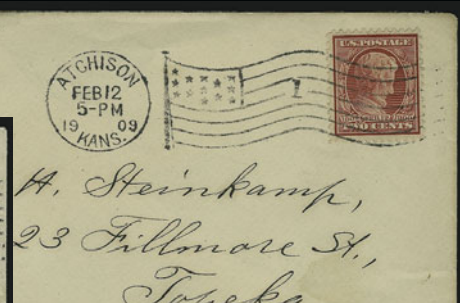 ATCHISON
FEB 12
5-PM
1909
KANS.
1
U.S. POSTAGE
TWO CENTS
H. Steinkamp,
23 Fillmore St.,
Topeka